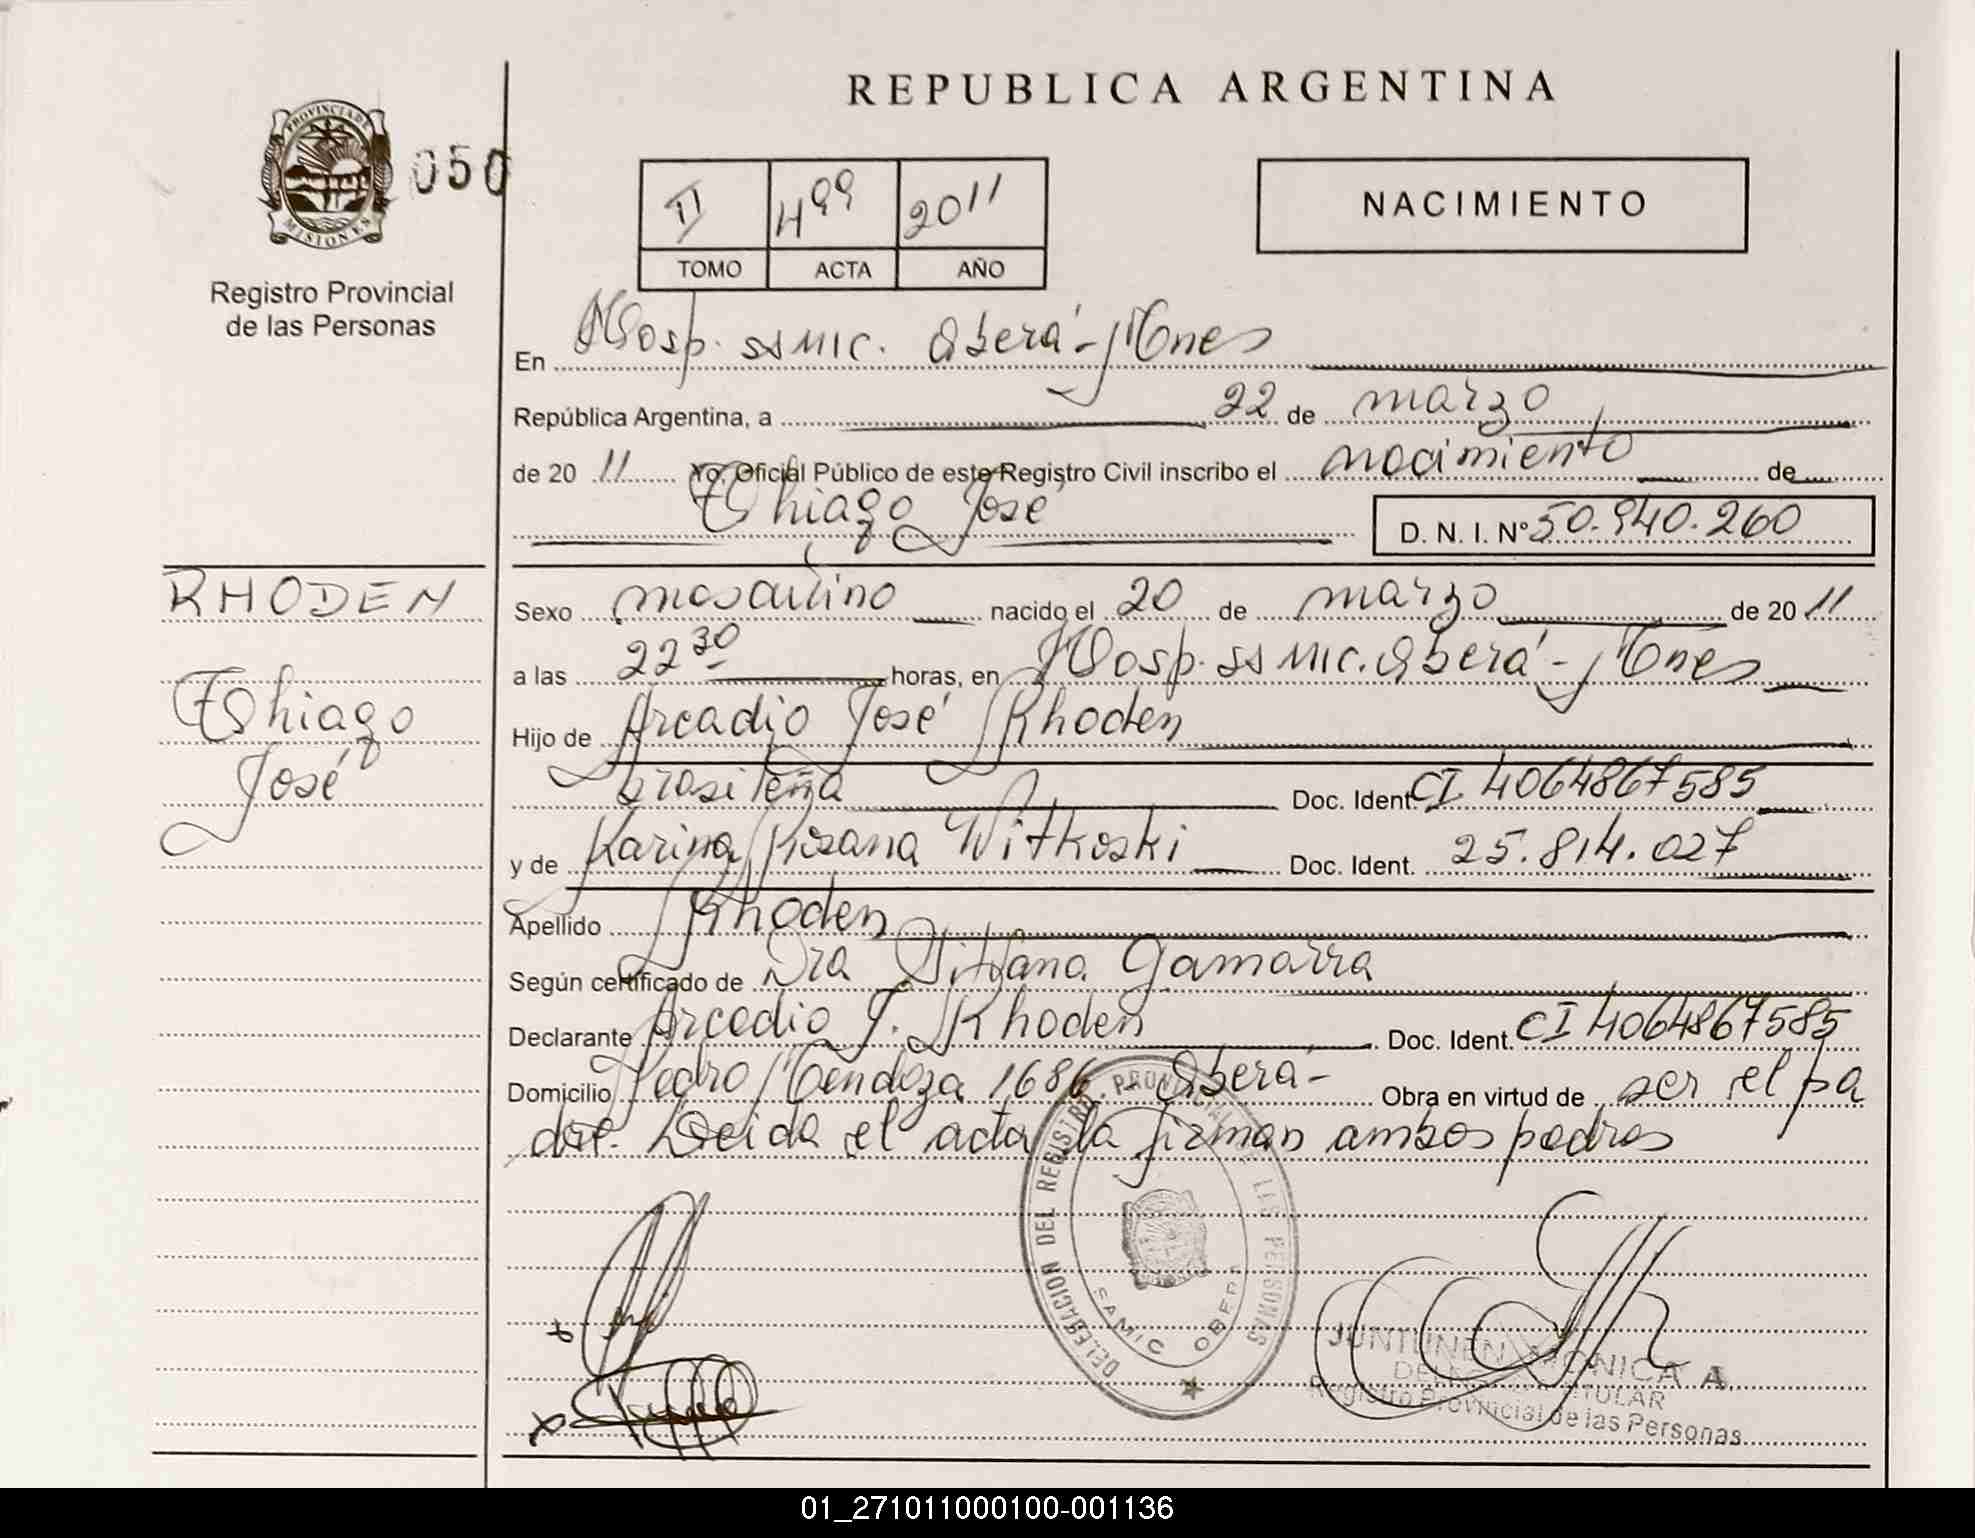 REPUBLICA ARGENTINA
PROVINCIA DE
MISIONES
050
Registro Provincial
de las Personas
II 499 2011
TOMO ACTA AÑO
NACIMIENTO
En Hosp. SSMIC. Oberá - Mnes
República Argentina, a 22 de marzo
de 2011 Yo, Oficial Público de este Registro Civil inscribo el nacimiento de
Thiago José
D. N. I. Nº 50.940.260
RHODEN
Thiago
José
Sexo masculino nacido el 20 de marzo de 2011
a las 22 30 horas, en Hosp. SSMIC. Oberá - Mnes
Hijo de Arcadio José Rhoden
brasileña Doc. Ident. CI 4064867585
y de Karina Rosana Witkoski Doc. Ident. 25.814.027
Apellido Rhoden
Según certificado de Dra Gamarra
Declarante Arcadio J. Rhoden Doc. Ident. CI 4064867585
Domicilio Pedro Mendoza 1686 - Oberá - Obra en virtud de ser el pa
dre. Leida el acta la firman ambos padres
DELEGACION DEL REGISTRO PROVINCIAL DE LAS PERSONAS
SAMIC OBERA
JUNTUNEN MONICA A.
TITULAR
Registro Provincial de las Personas
01_271011000100-001136